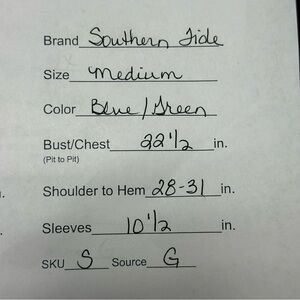 Brand Southern Tide
Size Medium
Color Blue/Green
Bust/Chest 22 1/2 in.
(Pit to Pit)
Shoulder to Hem 28-31 in.
Sleeves 10 1/2 in.
SKU S Source G